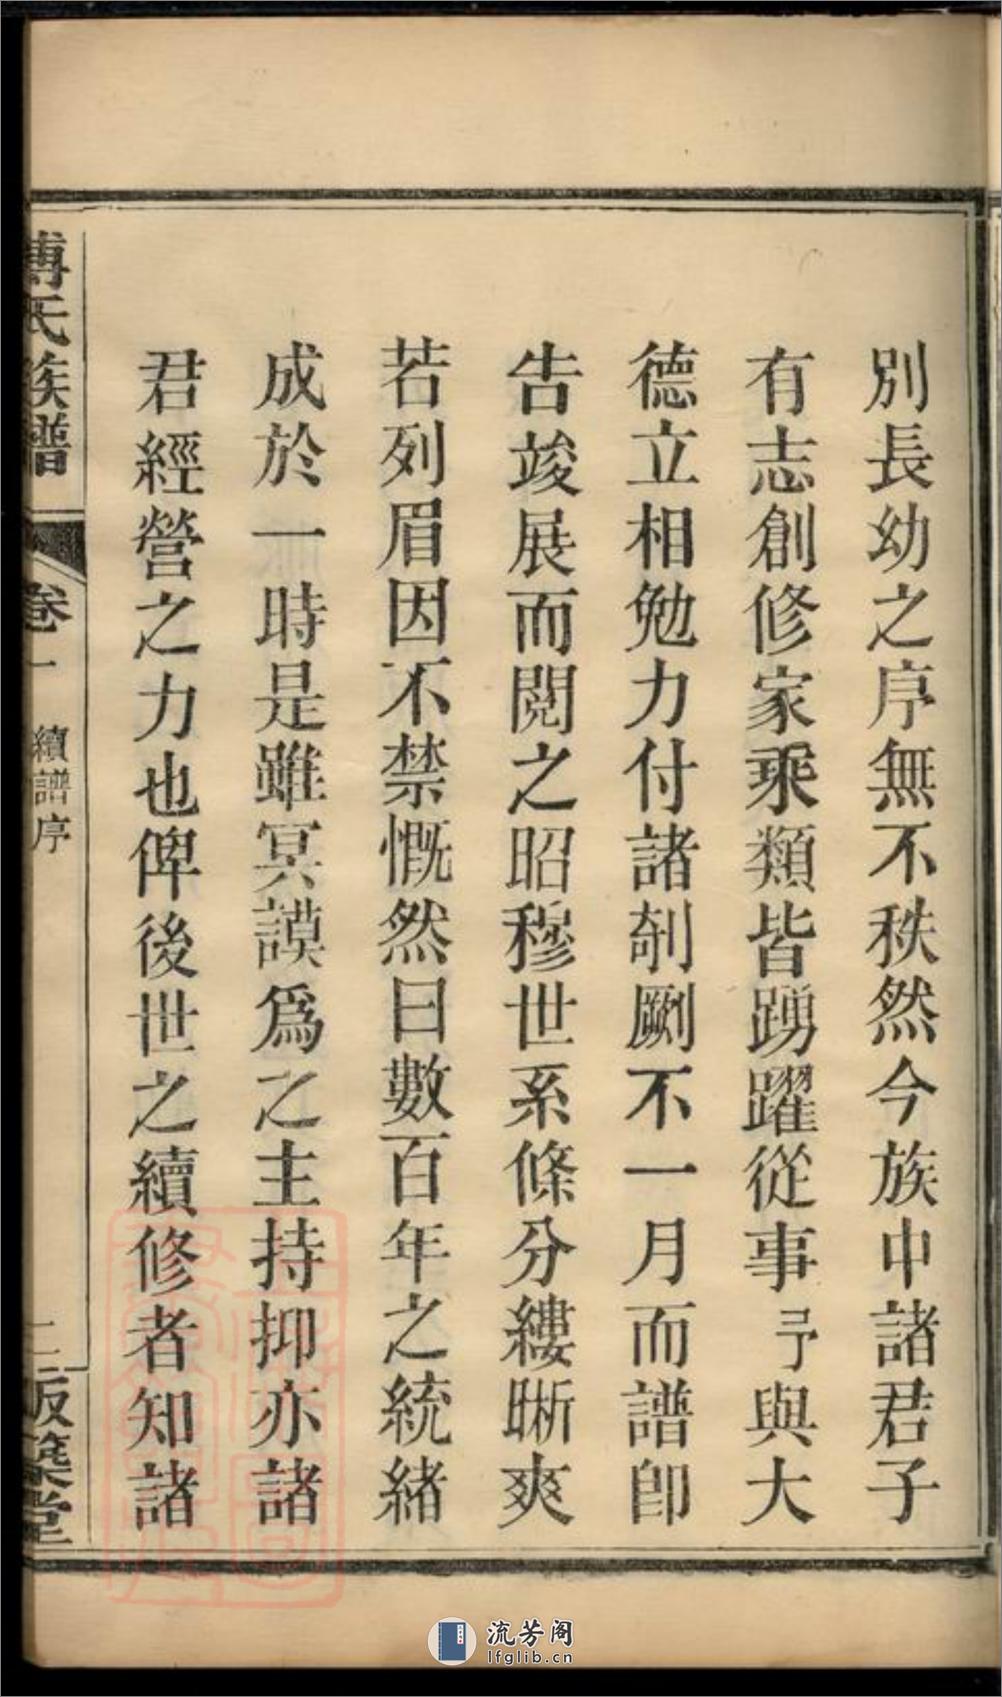 別長幼之序無不秩然今族中諸君子
有志創修家乘類皆踴躍從事予與大
德立相勉力付諸剞劂不一月而譜卽
告竣展而閱之昭穆世系條分縷晰爽
若列眉因不禁慨然曰數百年之統緒
成於一時是雖冥謨爲之主持抑亦諸
君經營之力也俾後世之續修者知諸
傅氏族譜
卷一
續譜序
二
版築堂
流芳阁
lfglib.cn